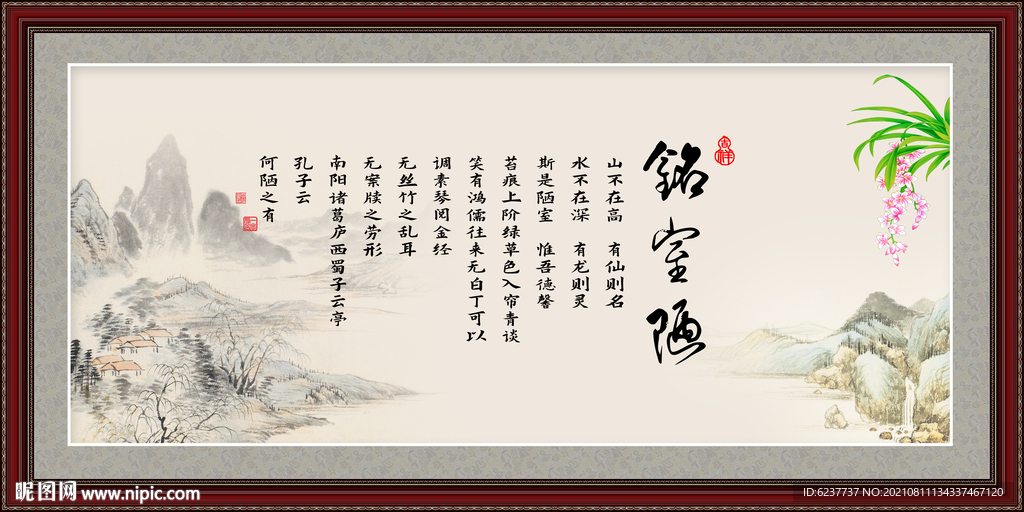 吉祥
銘室陋
山不在高 有仙则名
水不在深 有龙则灵
斯是陋室 惟吾德馨
苔痕上阶绿草色入帘青谈
笑有鸿儒往来无白丁可以
调素琴阅金经
无丝竹之乱耳
无案牍之劳形
南阳诸葛庐西蜀子云亭
孔子云
何陋之有
昵图网 www.nipic.com
ID:6237737 NO:20210811134337467120